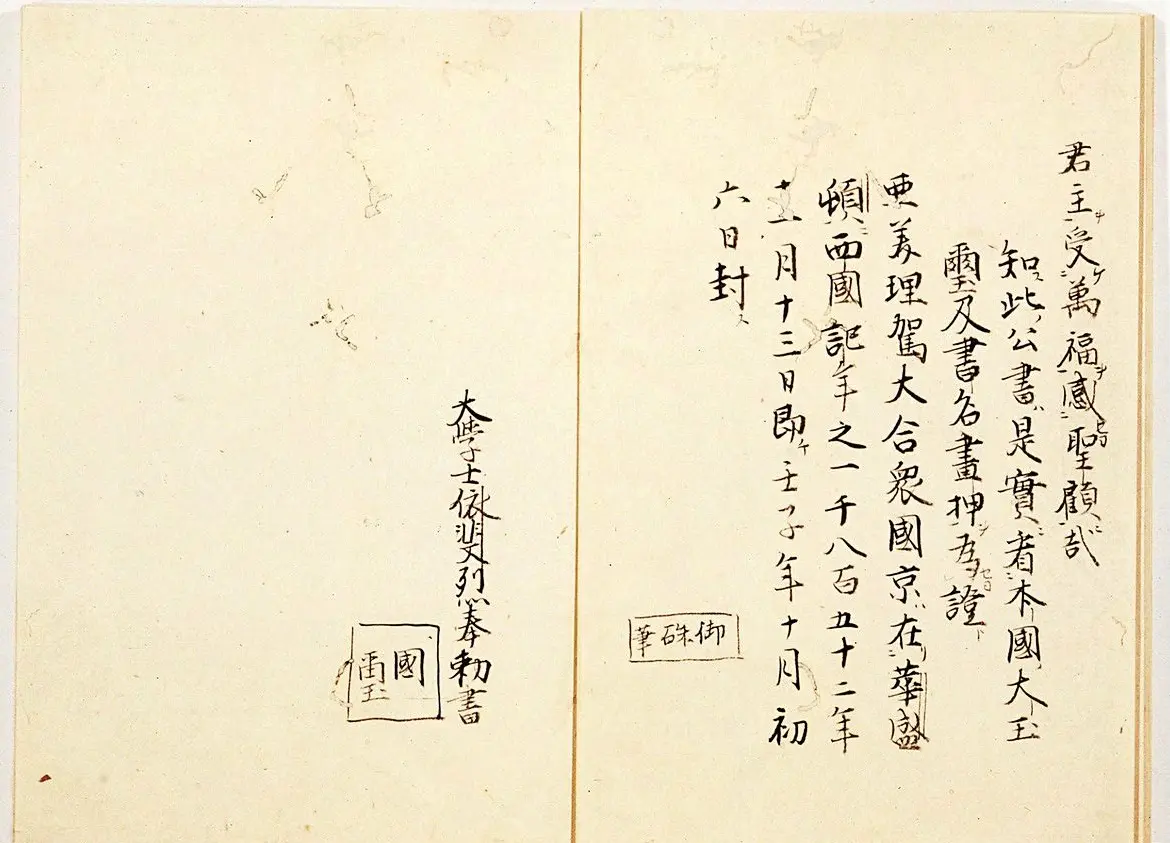 君主受萬福感聖顧哉
知此公書是實者本國大玉
璽及書名畫押為證
亜美理駕大合衆國京在華盛
頓西國記年之一千八百五十二年
十一月十三日即壬子年十月初
六日封
御硃華
大学士依斐烈奉勅書
國
璽